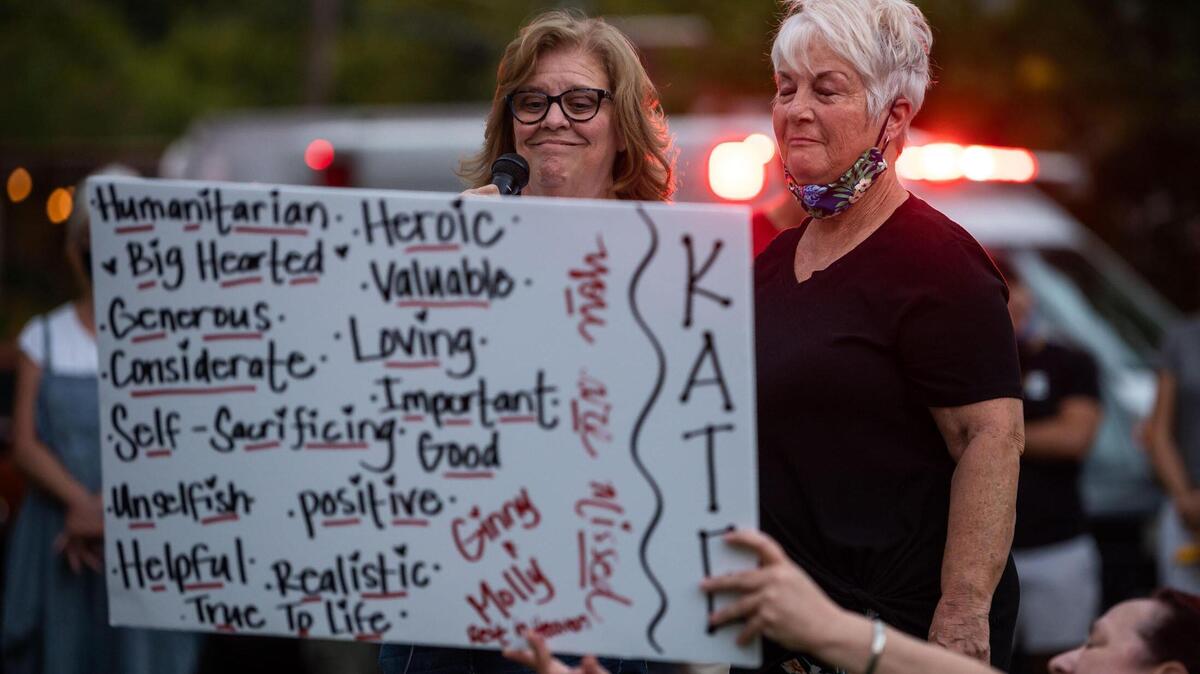 ·Humanitarian·
♥Big Hearted♥
·Generous·
·Considerate·
·Self-Sacrificing·
·Unselfish·
·Helpful·
True To Life
·Heroic·
·Valuable·
·Loving·
·Important·
·Good·
·positive·
·Realistic·
Ginny
Molly
will
are
missed
KAT